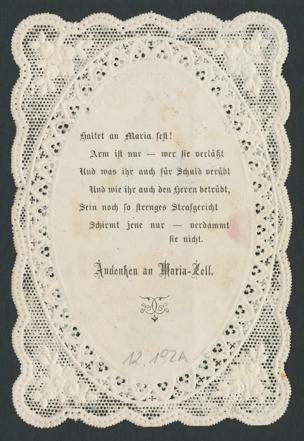 Haltet an Maria fest!
Arm ist nur — wer sie verläßt
Und was ihr auch für Schuld verübt
Und wie ihr auch den Herrn betrübt,
Sein noch so strenges Strafgericht
Schirmt jene nur — verdammt
sie nicht.
Andenken an Maria-Zell.
12.192A